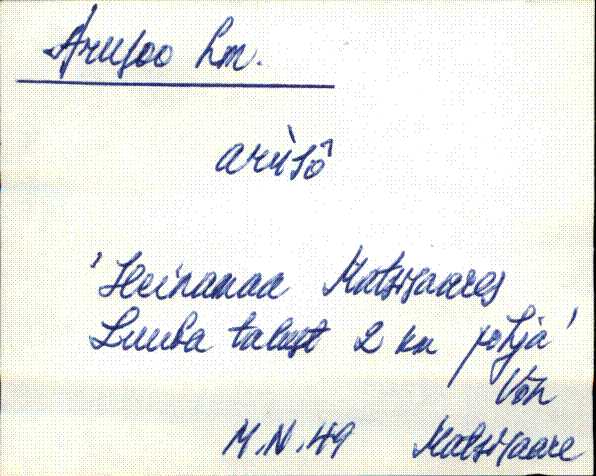 Arusoo hm.
arùsô
'Heinamaa Matsisaares
Luuba talust 2 km põhja'
Võn
M.N. 49 Matsisaare